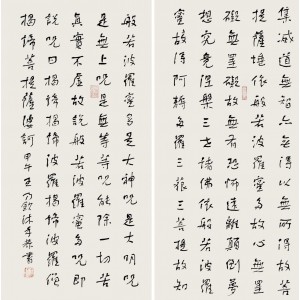 集滅道無智亦無得以無所得故菩
提薩埵依般若波羅蜜多故心無罣
礙無罣礙故無有恐怖遠離顛倒夢
想究竟涅槃三世諸佛依般若波羅
蜜多故得阿耨多羅三藐三菩提故知
般若波羅蜜多是大神呪是大明呪
是無上呪是無等等呪能除一切苦
真實不虛故說般若波羅蜜多呪即
說呪曰揭諦揭諦波羅揭諦波羅僧
揭諦菩提薩婆訶 甲午 沐手恭書